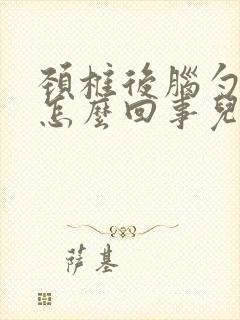 頚椎後腦勺
怎麼回事兒
萨基